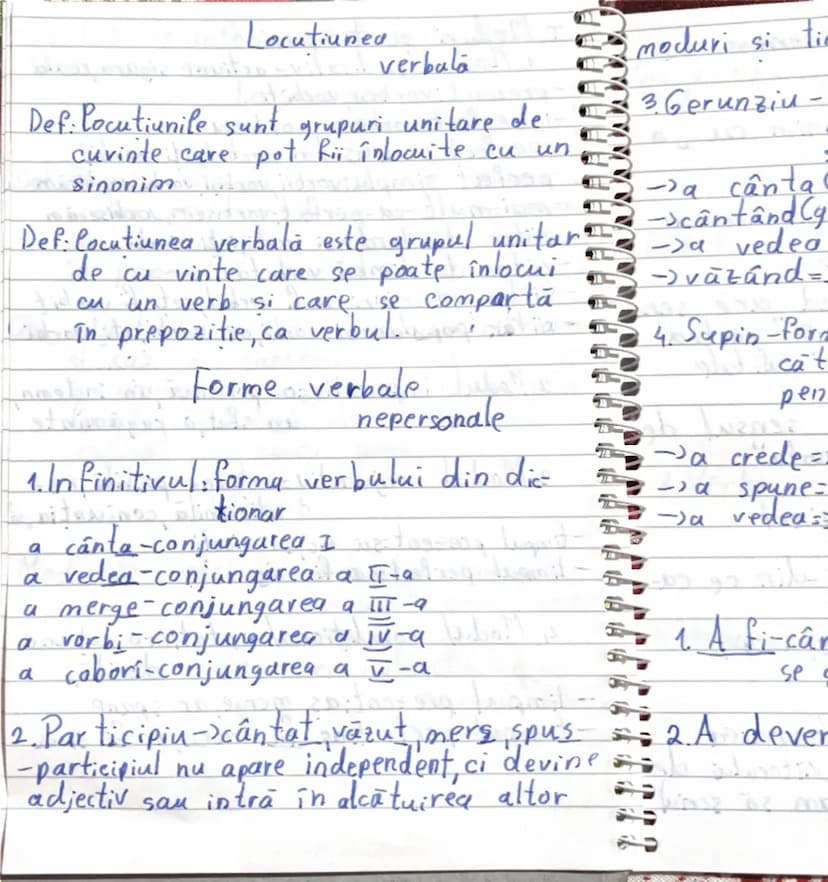 Locutiunea
verbală
Def: Locutiunile sunt grupuri unitare de
cuvinte care pot fii înlocuite cu un
sinonim
Def: locutiunea verbală este grupul unitar
de cu vinte care se poate înlocui
cu un verb și care se comportă
în prepoziție, ca verbul.
Forme verbale
nepersonale
1. Infinitivul: forma verbului din dic=
tionar
a cânta-conjungarea I
a vedea-conjungarea a II-a
a merge-conjungarea a III-a
a vorbi-conjungarea a IV-a
a coborî-conjungarea a V-a
2. Participiu->cântat, văzut, mers, spus-
-participiul nu apare independent, ci devine
adjectiv sau intră în alcătuirea altor
moduri si
3. Gerunziu-
->a cânta(
->cântând(g
->a vedea
->văzând=
4. Supin-for
căt
pen
->a crede=
->a spune=
->a vedea=
1. A fi-cân
se
2. A dever